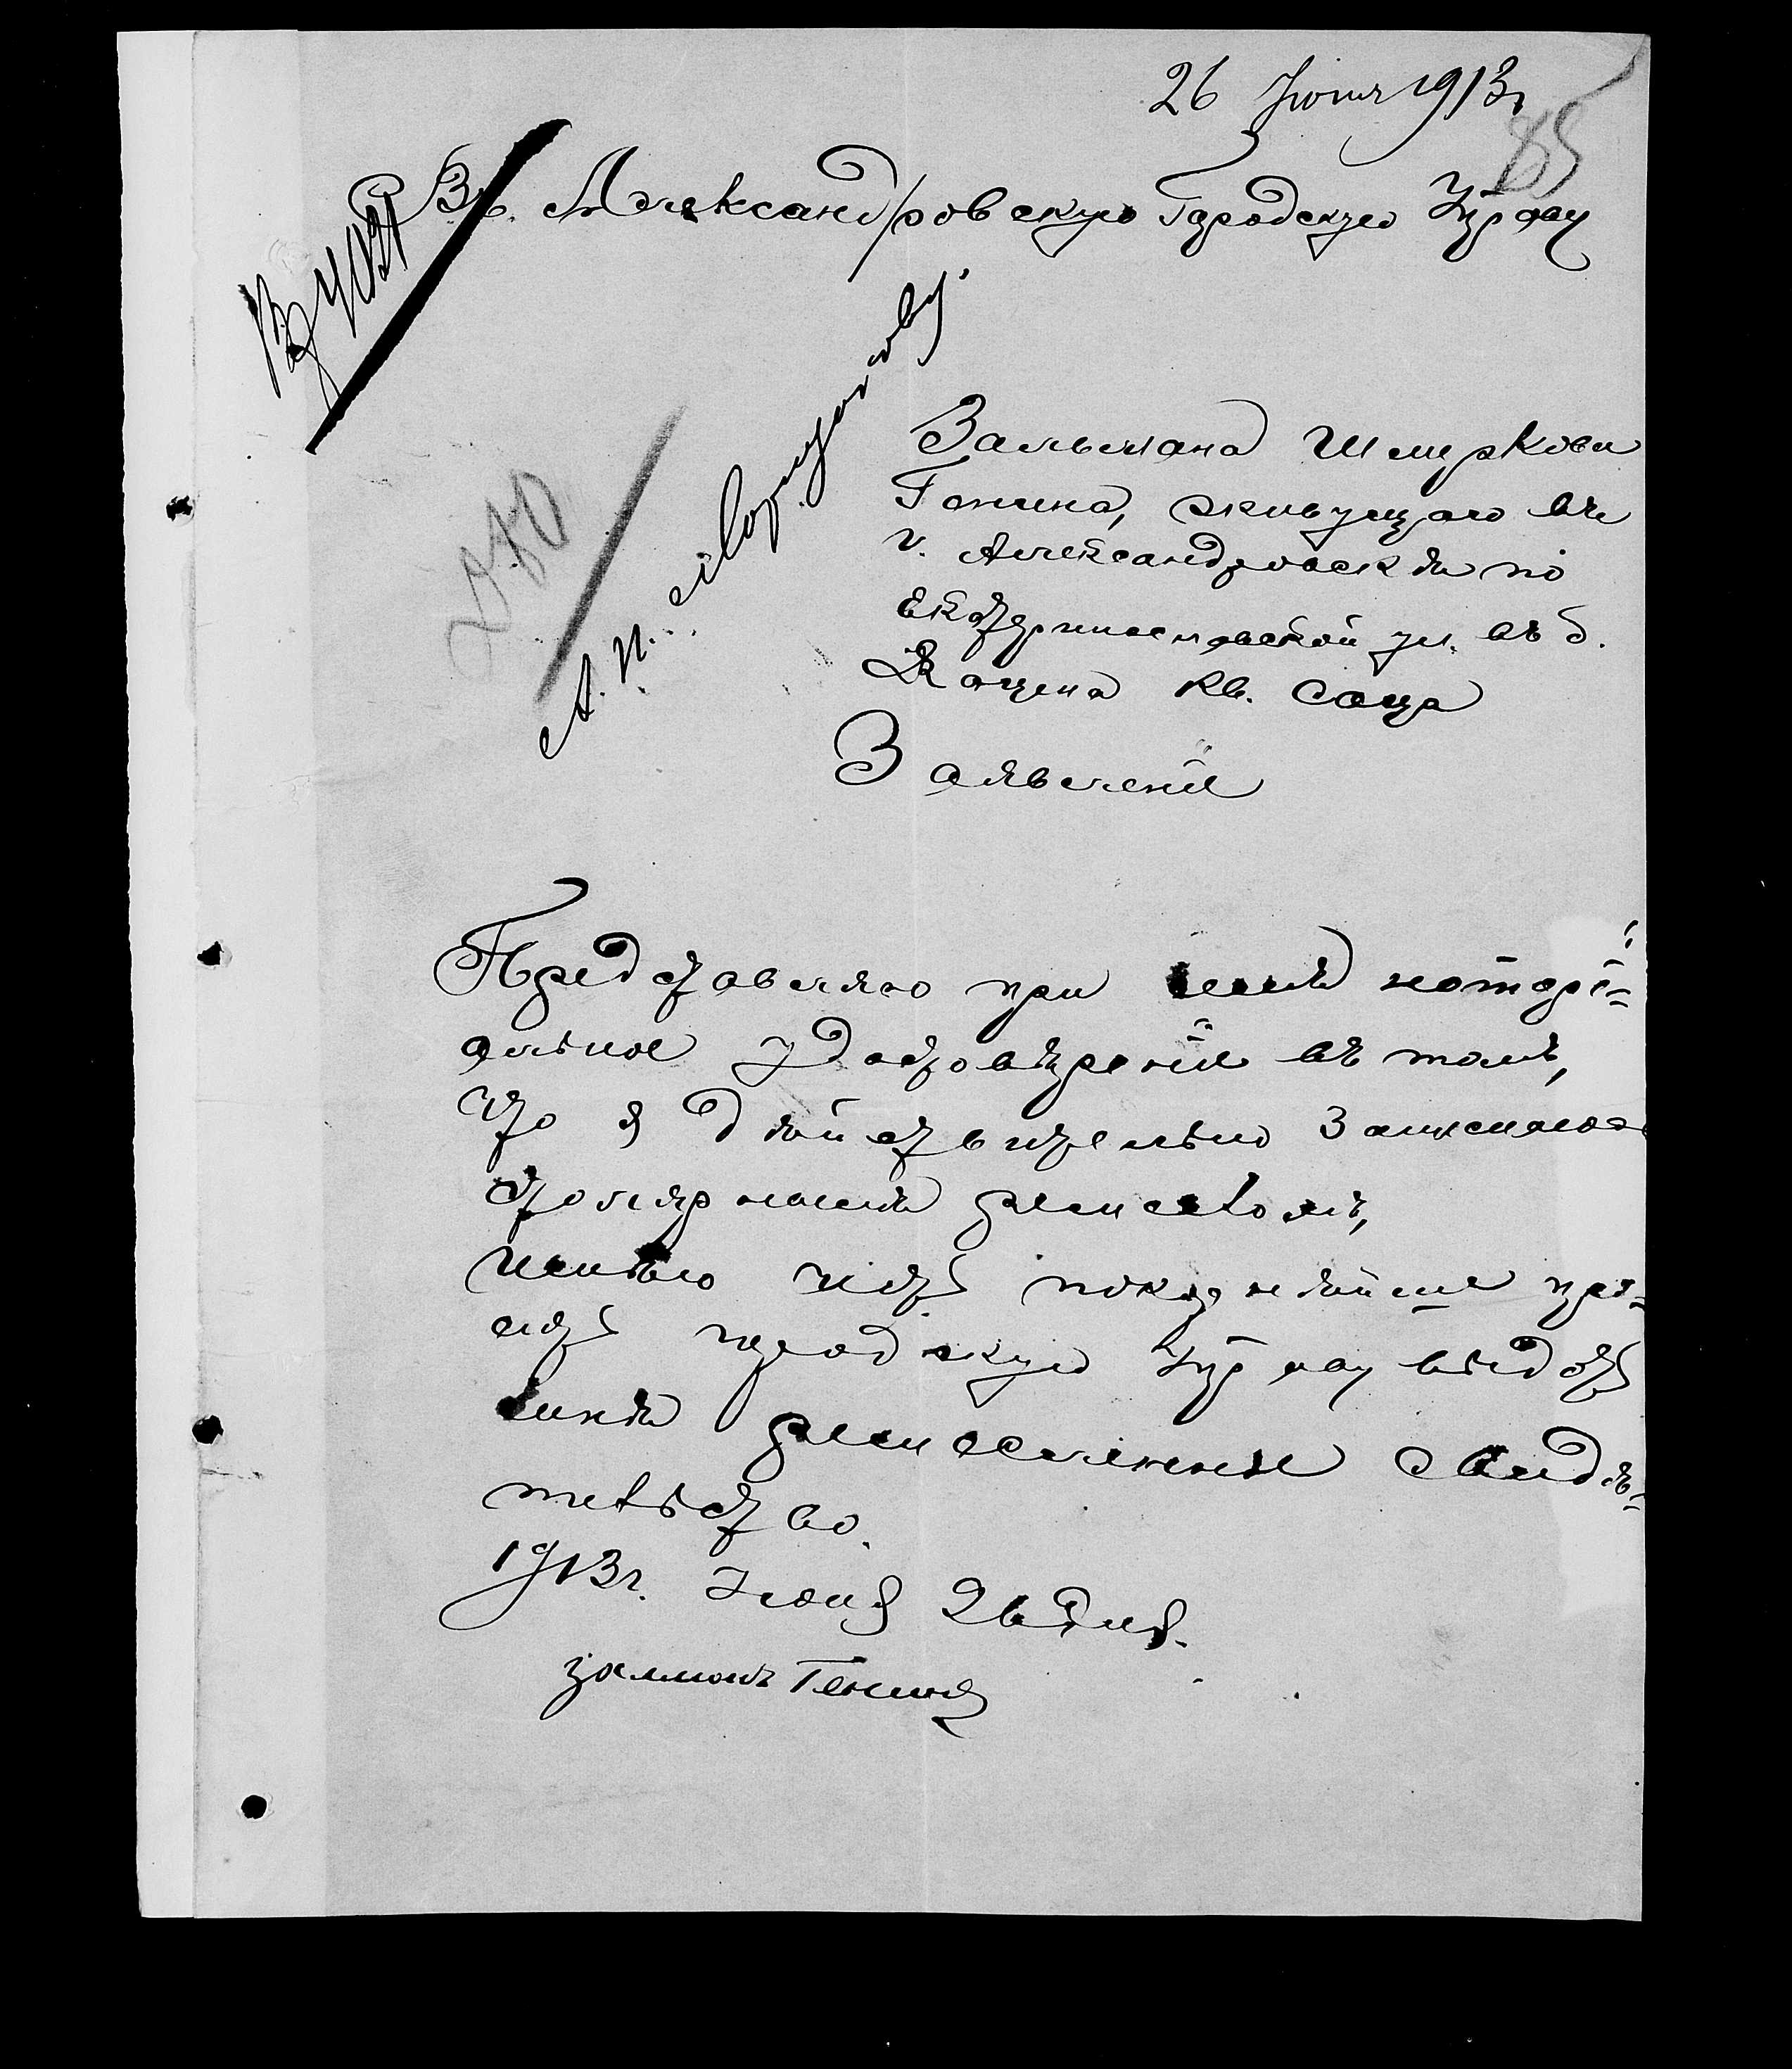 26 Іюня 1913 г
85
Въ Александровскую Городскую Управу
А. П.
Зальмана Шмеркова
Генина, живущаго въ
г. Александровскѣ по
Екатеринославской ул. въ д.
Кацена кв. Саца
Заявленіе
Представляю при семъ нотарі-
альное удостовѣреніе въ томъ,
что я дѣйствительно занимаюсь
столярнымъ ремесломъ,
имѣю честь покорнѣйше про-
сить городскую Управу выдать
мнѣ ремесленное свидѣ-
тельство.
1913 г. Іюня 26 дня.
Залманъ Генинъ